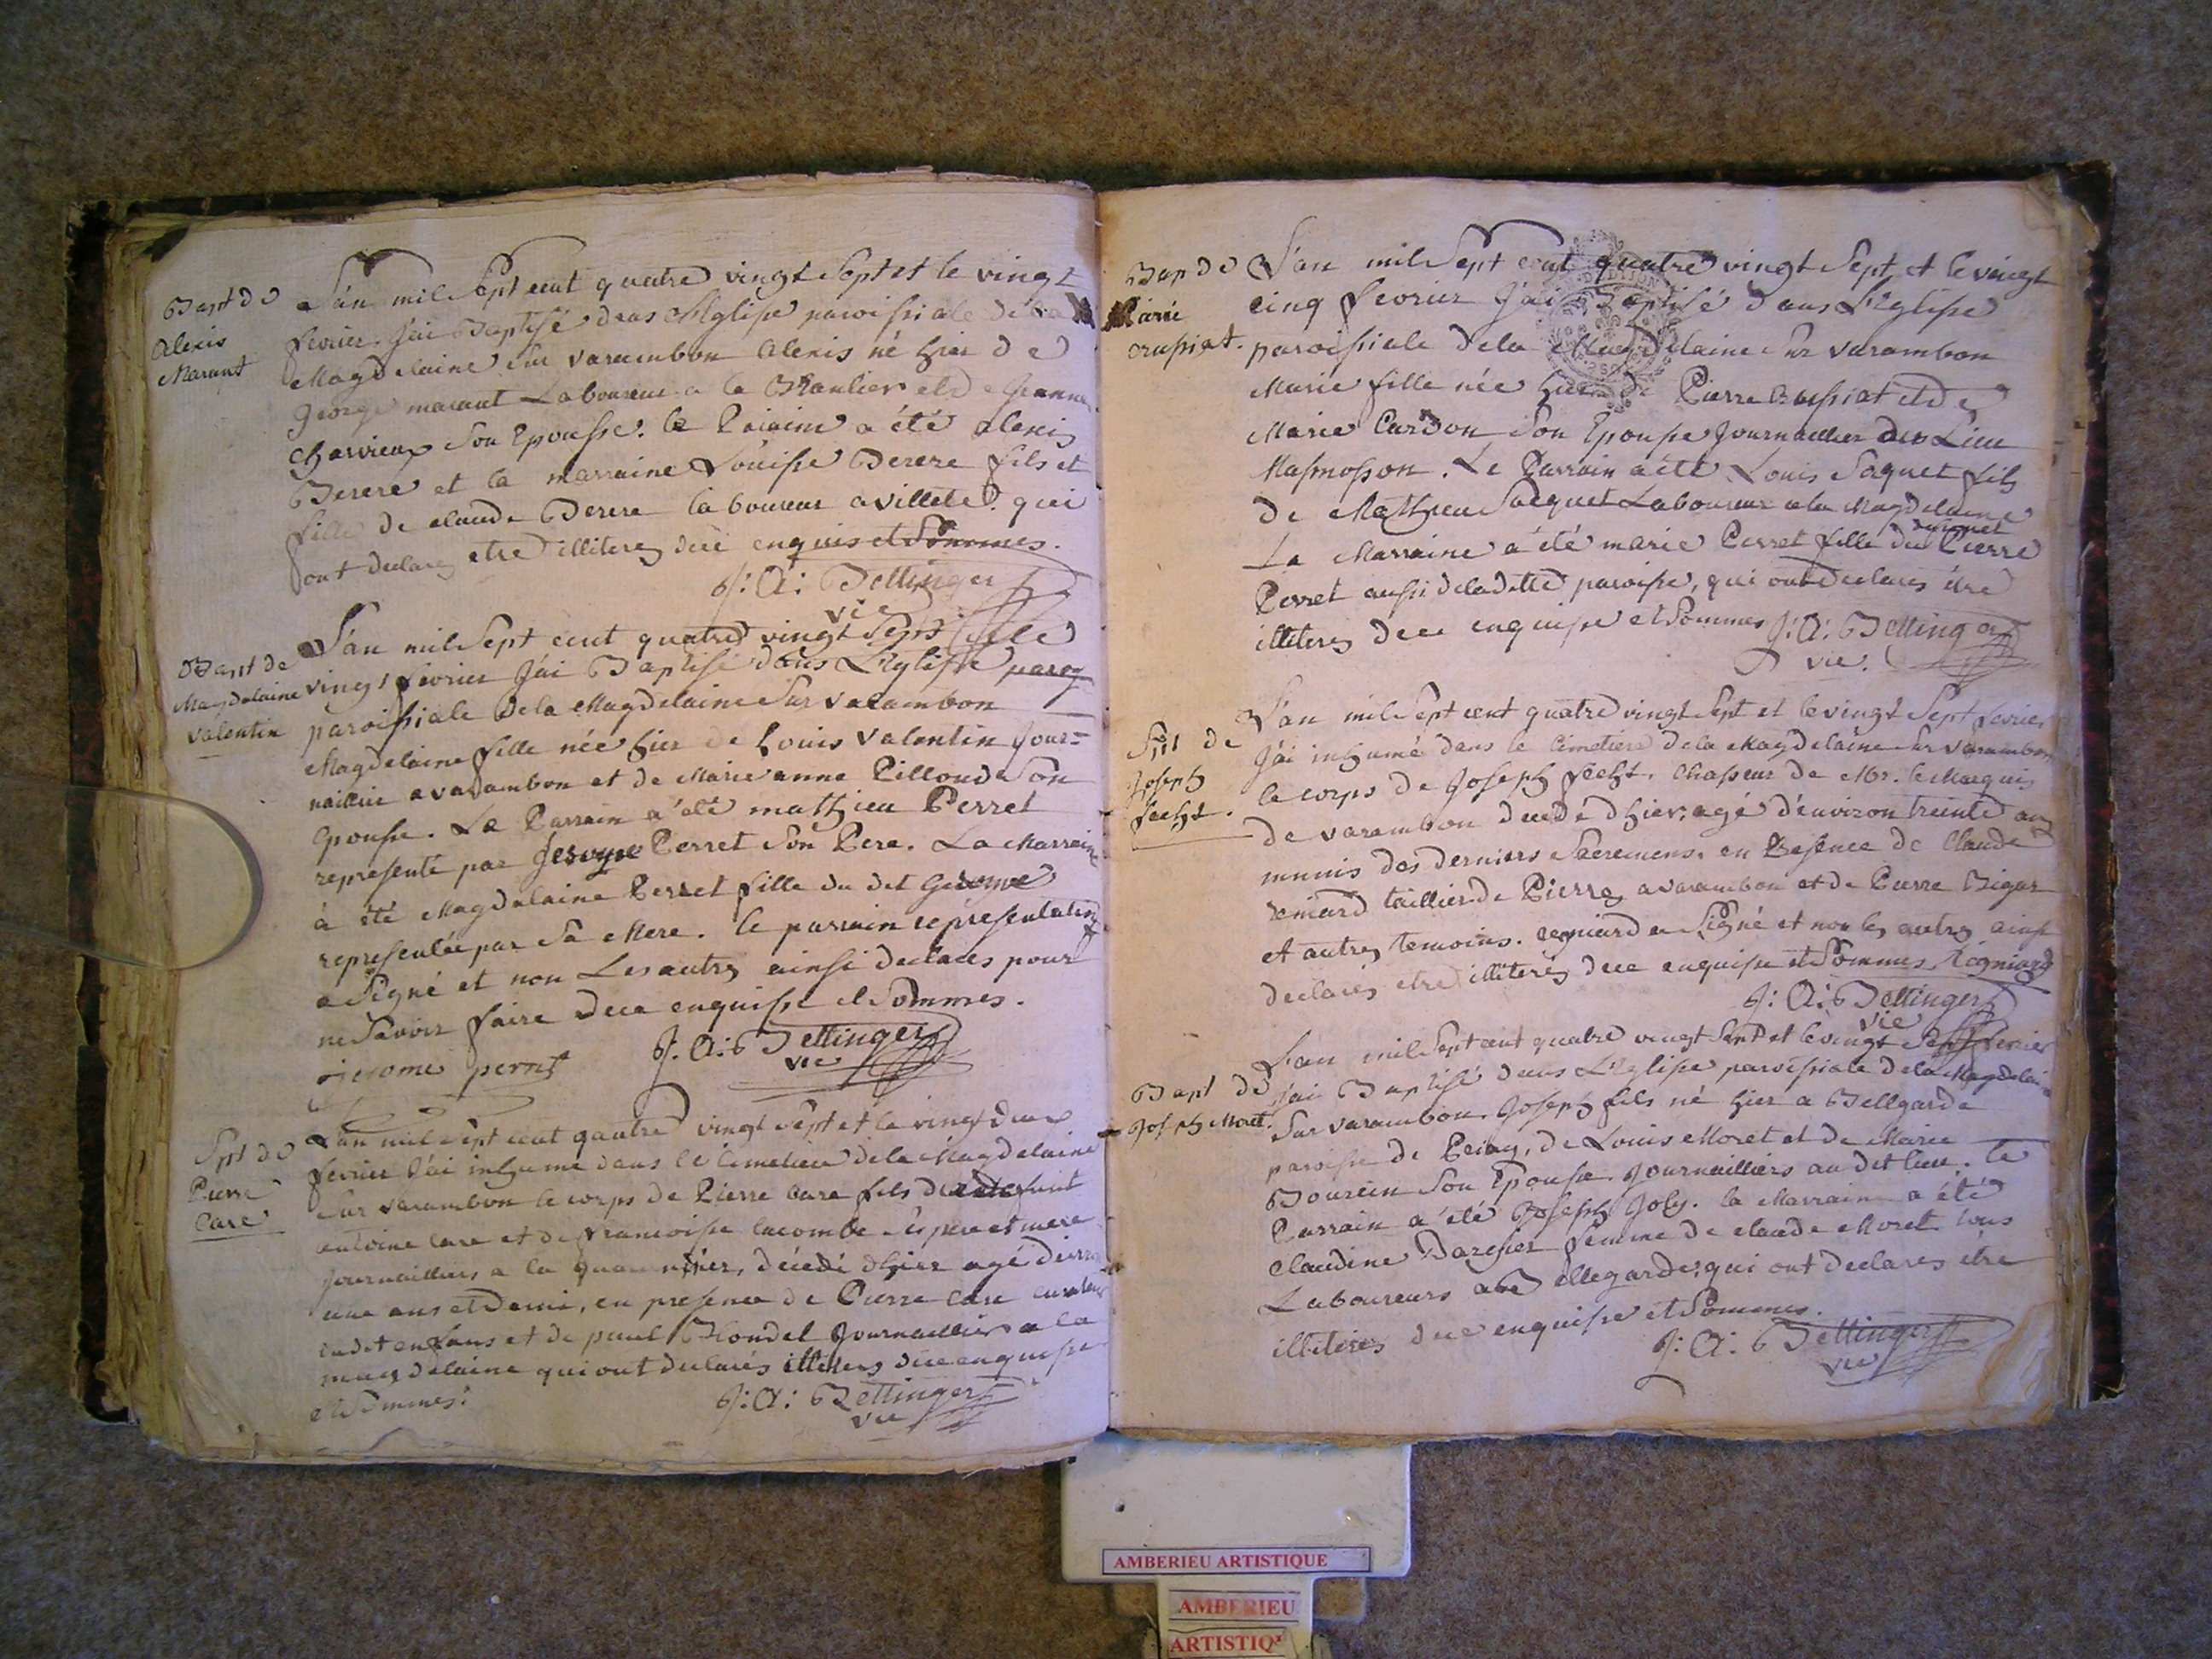 Bapt de
Alexis
Marant
L'an mil Sept cent quatre vingt Sept et le vingt
fevrier j'ai Baptisé dans L'Eglise paroissiale de la
Magdelaine sur varambon Alexis né hier de
george marant Laboureur a la et de jeanne
Charvieux son Epousse. le Pariain a été alexis
Berere et la marraine Louisse Berere fils et
fille de claude Berere laboureur a villete qui
ont declares etre illiteres dece enquis et Sommes.
J: A: Bettinger
vic
Bapt de
Magdelaine
valentin
L'an mil Sept cent quatre vingt Sept et le
vingt fevrier j'ai Baptisé dans L'Eglisse
paroissiale de la Magdelaine Sur varambon
Magdelaine fille née hier de Louis valentin jour=
naillier a varambon et de Marie anne Pilloud Son
Epousse. Le Parrain a été mathieu Perret
representé par Jerome Perret Son Pere. La Marraine
à été Magdelaine Perret fille du dit Gerome
representée par Sa Mere. le parrain representatif
a Signé et non Les autres ainsi declares pour
ne Savoir faire dece enquisse et Sommes.
jerome perret J. A: Bettinger
vic
Spt de
Pierre
Care
L'an mil Sept cent quatre vingt Sept et le vingt deux
fevrier J'ai inhumé dans le Cimetiere de la Magdelaine
Sur varambon le corps de Pierre Care fils de defunt
antoine Care et de francoisse lacombe Ses pere et mere
journailliers a la décédé d'hier agé
une ans et Demi, en presence de Pierre Care curateur
du dit enfans et de paul Blondel journaillier a la
magdelaine qui ont declarés illiteres dece enquisse
et Sommes.
J: A: Bettinger
vic
Bap de
Marie
crussiat.
L'an mil Sept cent quatre vingt Sept et le vingt
cinq fevrier j'ai Baptisé dans L'Eglisse
paroissiale de la Magdelaine Sur varambon
Marie fille née hier de Pierre crussiat et de
Marie Cardon Son Epousse journaillier du Lieu
Masmosson. Le Parrain a été Louis Saquet fils
de Mathieu Saquet Laboureur a la Magdelaine
La Marraine a été marie Perret fille du Pierre
Perret aussi de la dette paroisse, qui ont declares être
illiteres dece enquisse et Sommes J: A: Bettinger
vic.
Spt de
Joseph
fecht.
L'an mil Sept cent quatre vingt Sept et le vingt Sept fevrier
j'ai inhumé dans le Cimetiere de la Magdelaine Sur varambon
le corps de Joseph fecht, Chasseur de Mr. le Marquis
de varambon decedé d'hier, agé d'environ treinte ans
munis des derniers Sacremens. en Presence de Claude
taillier de Pierres a varambon et de Pierre Bigot
et autres temoins. regniard a Signé et non les autres ainsi
declarés etre illiteres dece enquisse et Sommes. Régniard
J: A: Bettinger
vic
Bapt de
Joseph Moret.
L'an mil Sept cent quatre vingt Sept et le vingt Sept fevrier
j'ai Baptisé dans L'Eglisse paroissiale de la Magdelaine
Sur varambon. Joseph fils né hier a Bellgarde
paroisse de Priay, de Louis Moret et de Marie
Bourcin Son Epousse. journailliers au dit lieu. le
Parrain a été Joseph Joly. la Marraine a été
Claudine femme de claude Moret tous
Laboureurs a Bellegarde, qui ont declares être
illiteres dece enquisse et Sommes.
J: A: Bettinger
vic
AMBERIEU ARTISTIQUE
AMBERIEU
ARTISTIQ